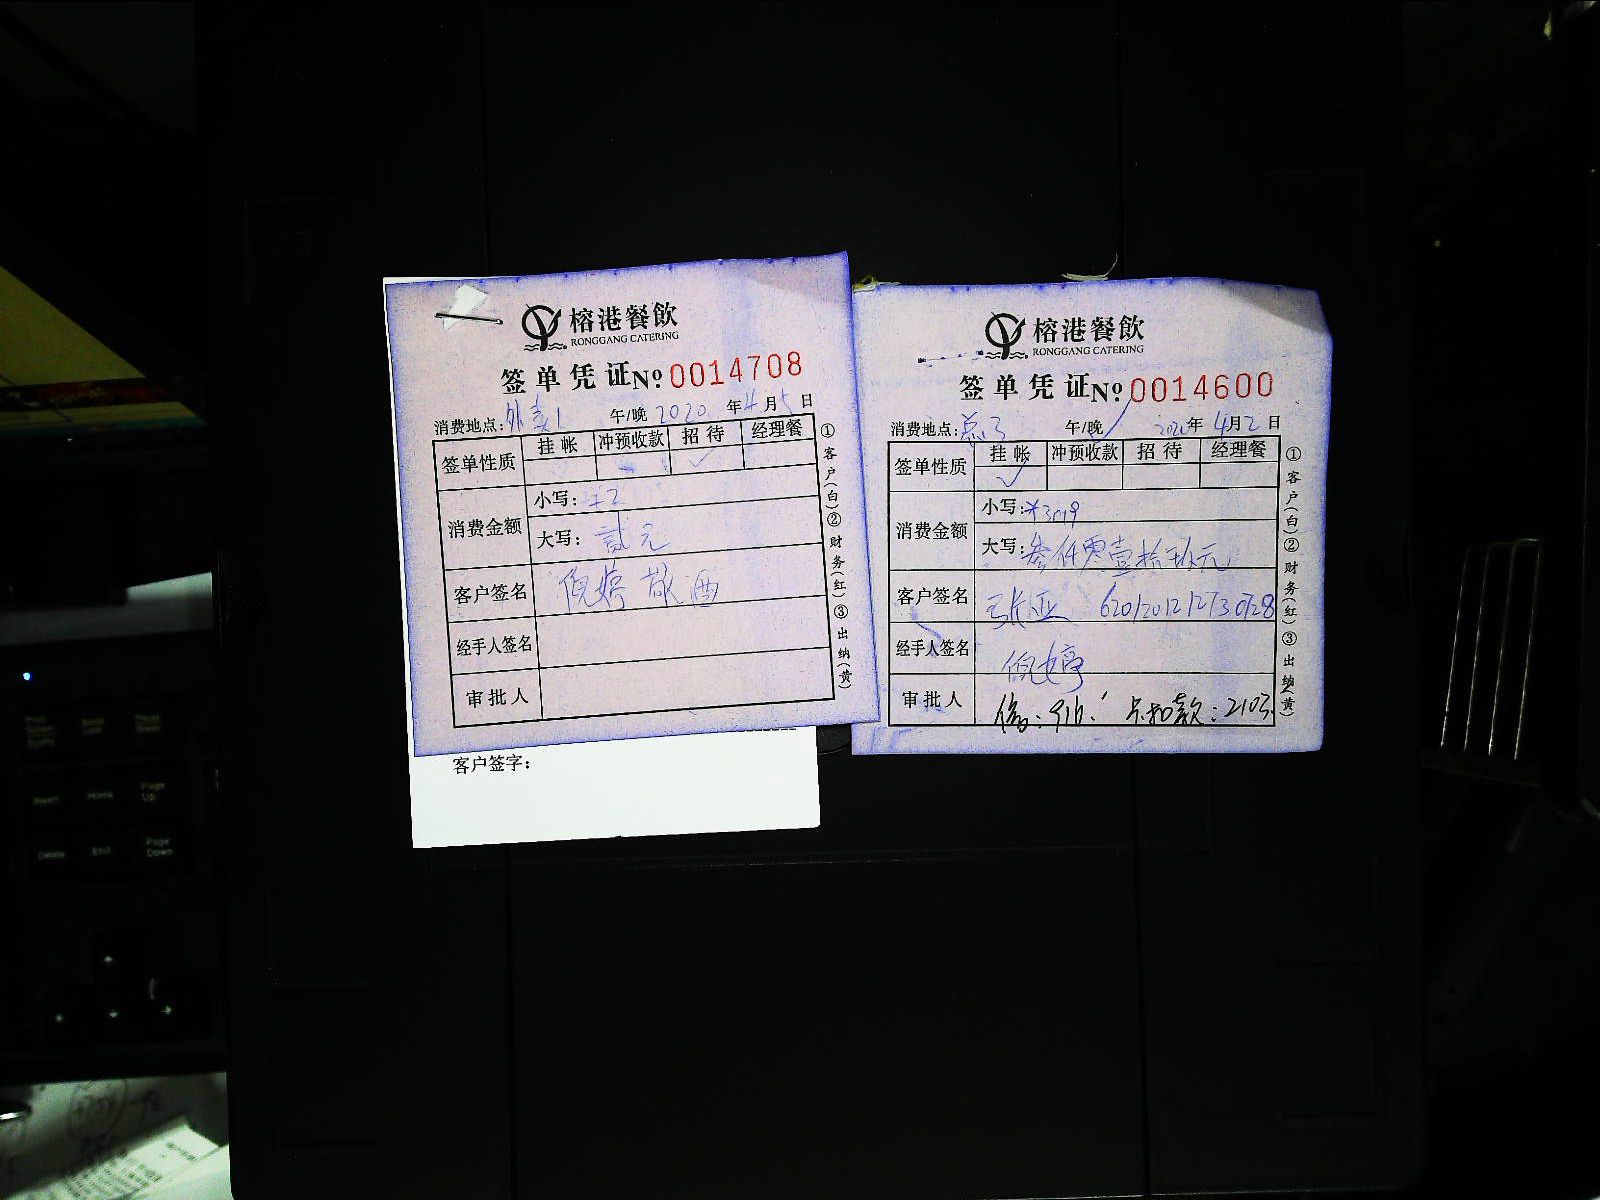 榕港餐飲
RONGGANG CATERING
签单凭证 No 0014708
消费地点: 外卖1 午/晚 2020年4月5日
签单性质 挂帐 冲预收款 招待 经理餐
消费金额
小写: ¥2
大写: 贰元
客户签名 倪婷 敬酒
经手人签名
审批人
①客户(白)②财务(红)③出纳(黄)
客户签字:
榕港餐飲
RONGGANG CATERING
签单凭证 No 0014600
消费地点: 午/晚 2020年4月2日
签单性质 挂帐 冲预收款 招待 经理餐
消费金额
小写: ¥3019
大写: 叁仟零壹拾玖元
客户签名 张亚
经手人签名 倪婷
审批人 916. 卡扣款: 2103.
①客户(白)②财务(红)③出纳(黄)
Insert Home Page Up
Delete End Page Down